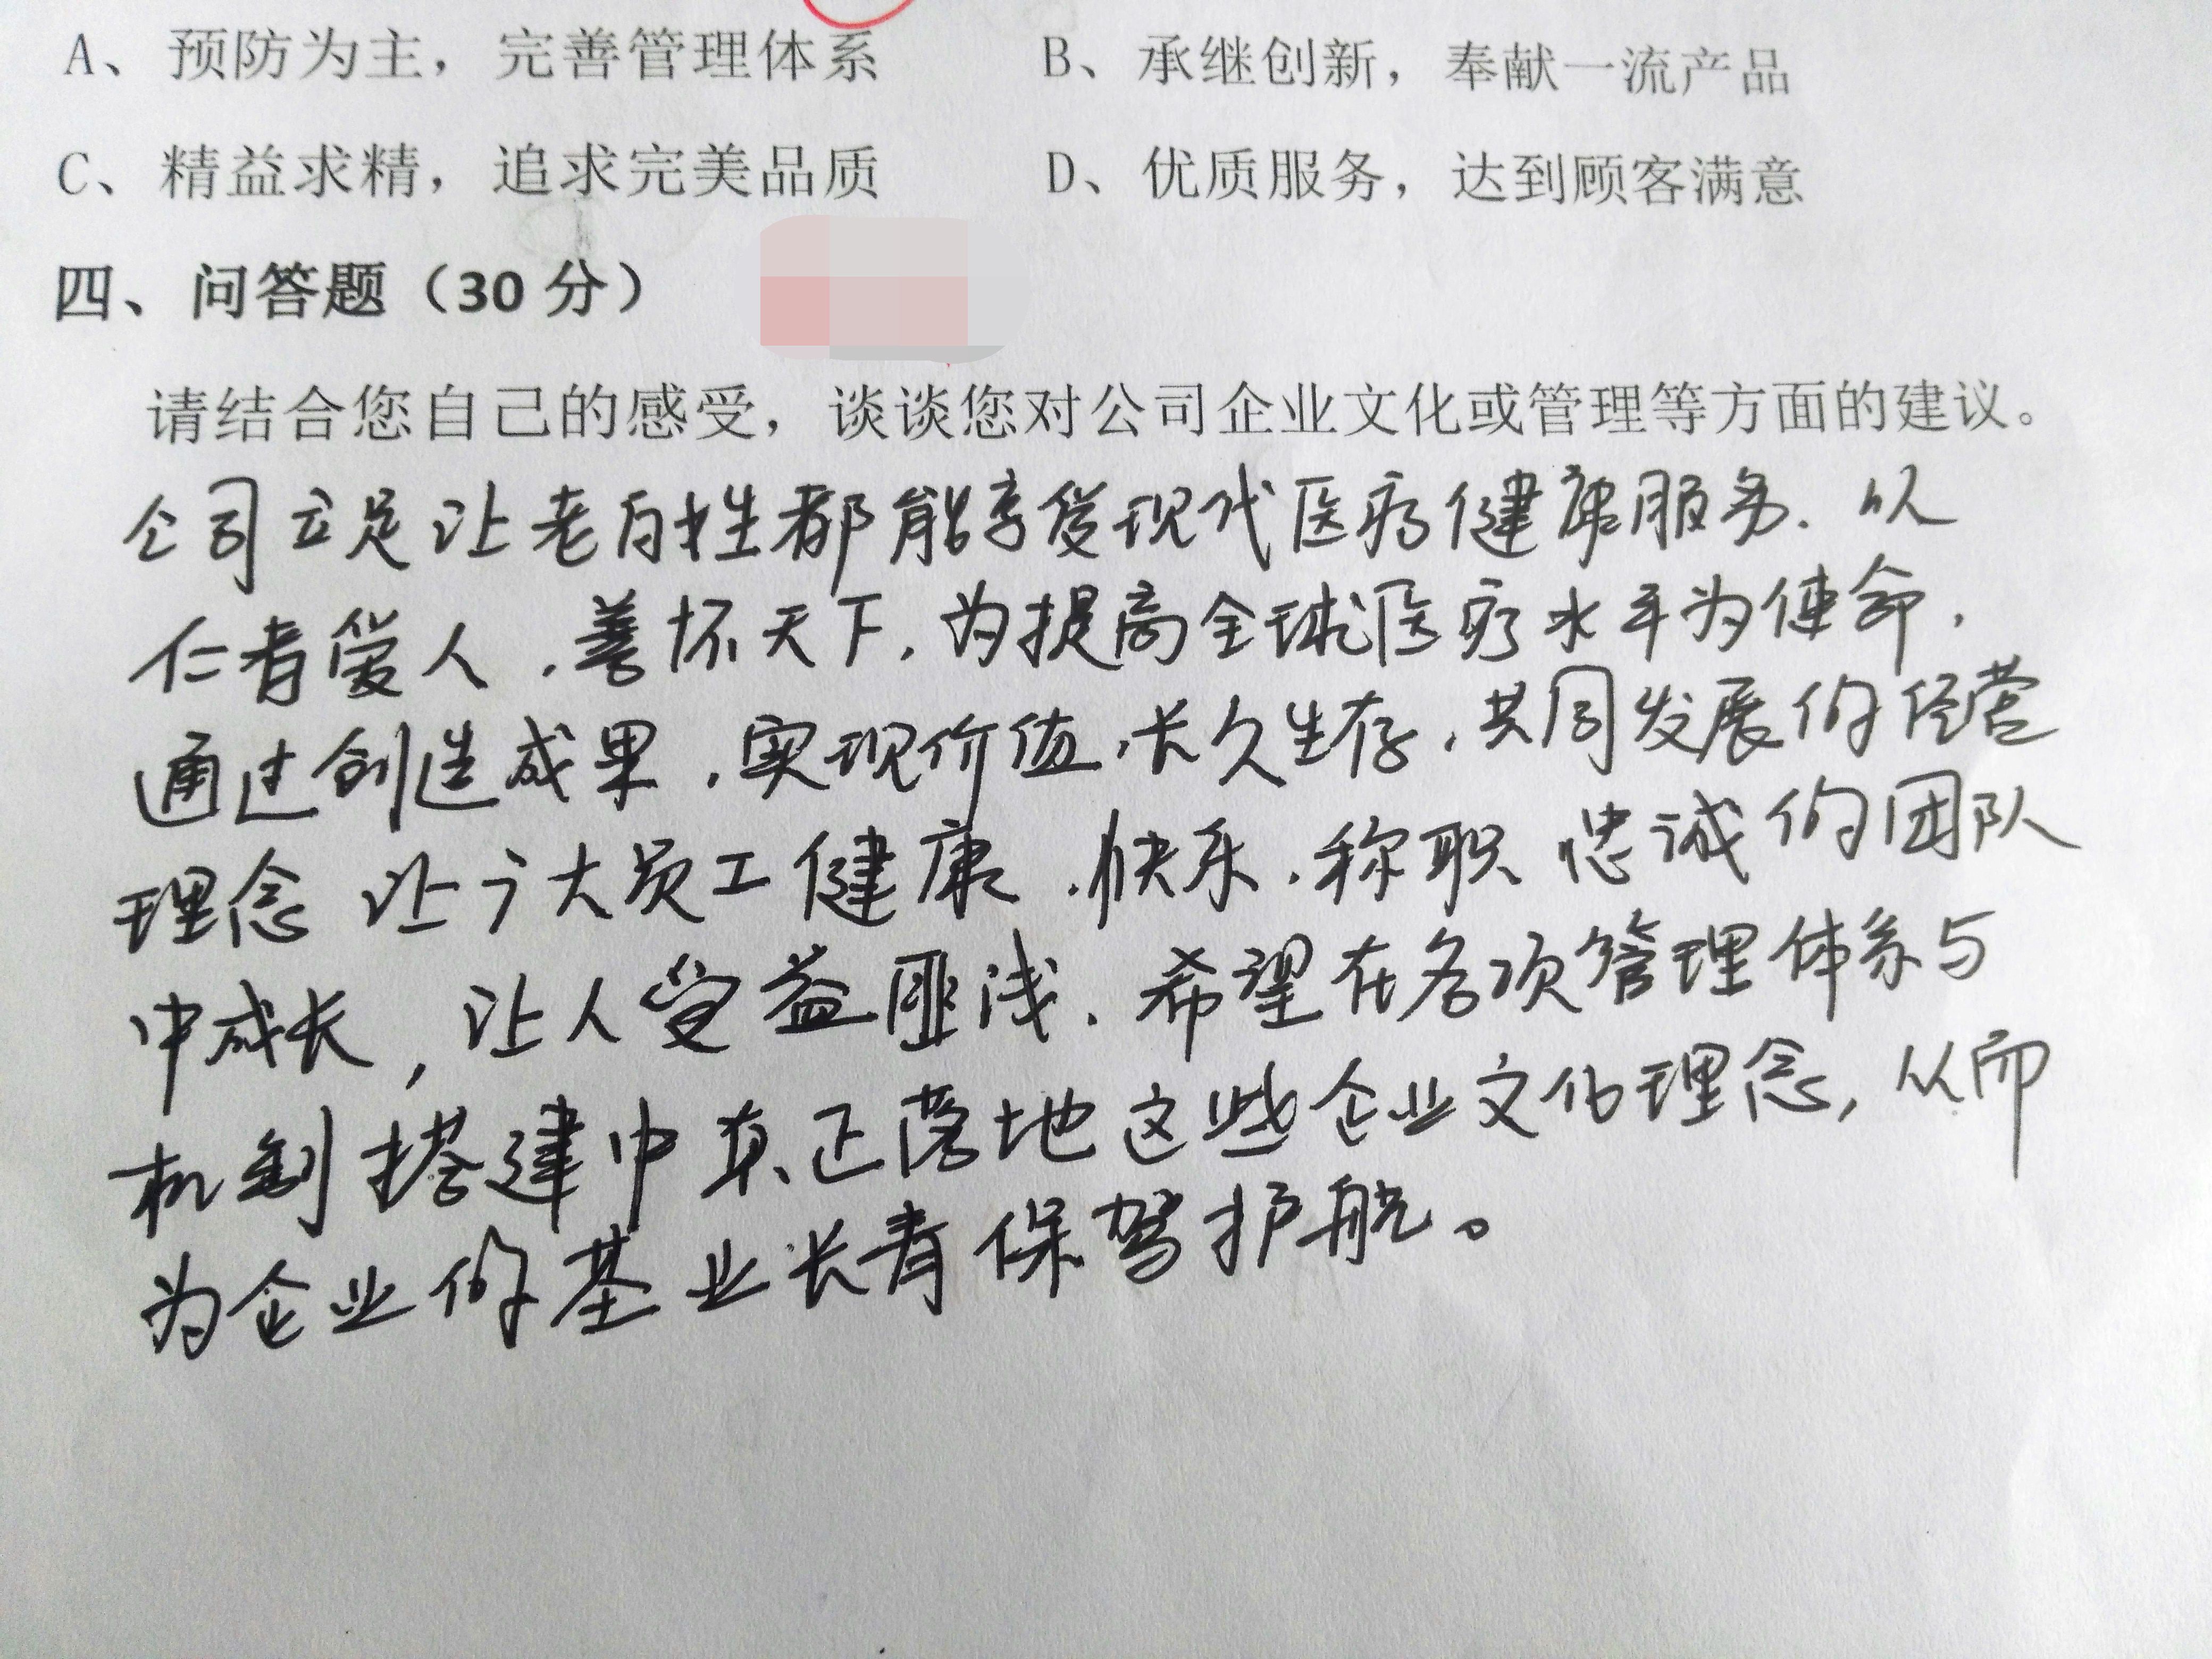 A、预防为主，完善管理体系 B、承继创新，奉献一流产品
C、精益求精，追求完美品质 D、优质服务，达到顾客满意
四、问答题（30分）
请结合您自己的感受，谈谈您对公司企业文化或管理等方面的建议。
公司立足让老百姓都能享受现代医疗健康服务.以
仁者爱人.善怀天下.为提高全球医疗水平为使命.
通过创造成果.实现价值.长久生存.共同发展的经营
理念 让广大员工健康.快乐.称职 忠诚的团队
中成长，让人受益匪浅.希望在各项管理体系与
机制搭建中真正落地这些企业文化理念，从而
为企业的基业长青保驾护航。